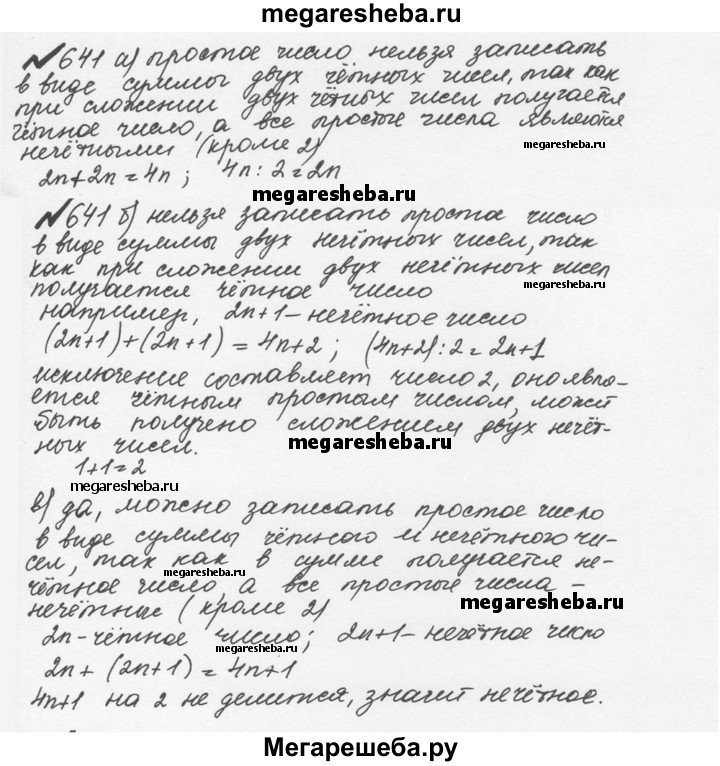 megaresheba.ru
№641 а) простое число нельзя записать
в виде суммы двух чётных чисел, так как
при сложении двух чётных чисел получается
чётное число, а все простые числа являются
нечётными (кроме 2)
2n+2n=4n; 4n:2=2n
megaresheba.ru
№641 б) нельзя записать простое число
в виде суммы двух нечётных чисел, так
как при сложении двух нечётных чисел
получается чётное число
megaresheba.ru
например, 2n+1-нечётное число
(2n+1)+(2n+1)=4n+2; (4n+2):2=2n+1
исключение составляет число 2, оно явля-
ется чётным простым числом, может
быть получено сложением двух нечёт-
ных чисел.
megaresheba.ru
1+1=2
megaresheba.ru
в) да, можно записать простое число
в виде суммы чётного и нечётного чи-
сел, так как в сумме получается не-
megaresheba.ru
чётное число, а все простые числа -
нечётные (кроме 2)
megaresheba.ru
2n-чётное число; 2n+1-нечётное число
2n+(2n+1)=4n+1
4n+1 на 2 не делится, значит нечётное.
Мегарешеба.ру